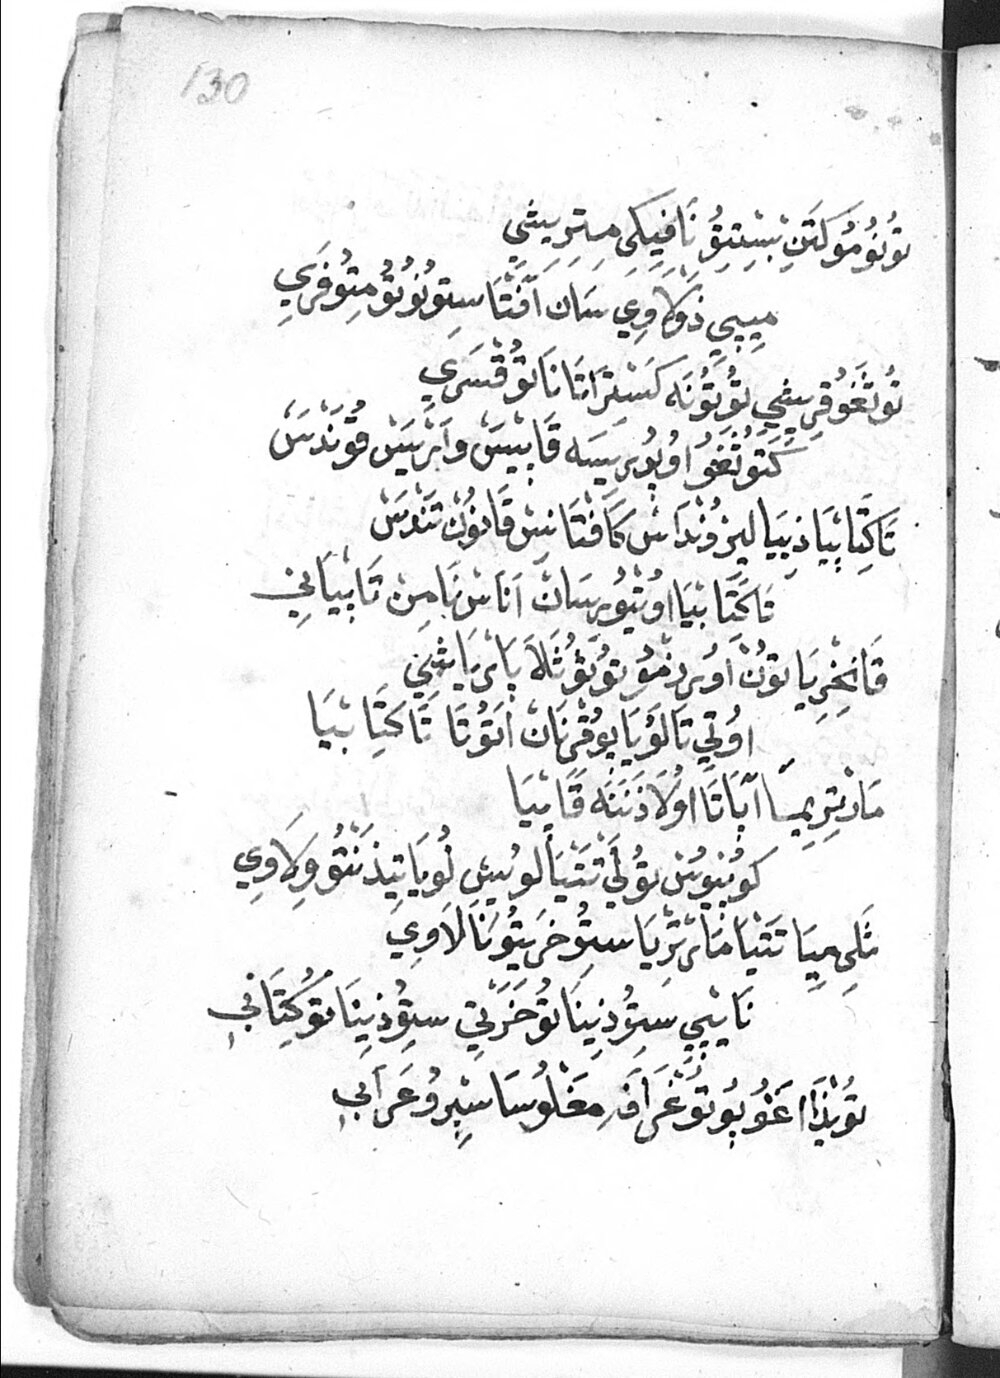 130
تُونُو مُوكَتَنِ بْسِتِتُو نَافِيكِي مِتِرِيتِي
مِيبِي ذَوْلَاوِي سَان اَفْتَا سِتُونُوتُو مِتُوفَرِي
تُو تَغُوقِرِيتِي تُوتُونَه كَسْتِرَاتَا نَاتُو قْسَرِي
كَتَو تُغَوْ اوُپُورِيسَه قَابِيسْ وَاتْرِيسْ قُونَدَسْ
تَاكِتَابِيَا ذِبِيَا لِيزُونْدَاسْ كَافْتَانِسْ قَانُونْ تَنْدَسْ
تَاكَتَابْيَا اوُتْيُورِسَانْ اَنَاسْ نَامِنْ تَابِيَانِي
قَانْخِرِيَا تُونْ اوُرِذْمُو تُوتُو تَلَا پَاتْرِيَا تِينِي
اوُتِي تَالَوْيَا پُوقْرِنَانْ اَتُوتَا تَاكِتَابْيَا
مَاذِيتِرِيمْسَا اَبَاتَا اوُلَا ذَنَتَه قَابْيَا
كوُبْيُوسْ تُولِي تَتْيَا لوُيِسْ لُوپَاتِيذَنْتُو وِلَاوِي
ثَلِي مِيَا تَتْيَا مَاتْرِيَا سِتُوخَرِيتُونَا لَاوِي
نَابِيبِي سِتُوذِينَا تُوخَرْتِي سِتُوذِينَا تُو كِتَابِي
تُوبْذَا اغَوُپُو تُوغْرَافَه مَغْلُوسَا سْپِرُو عَرَابِي